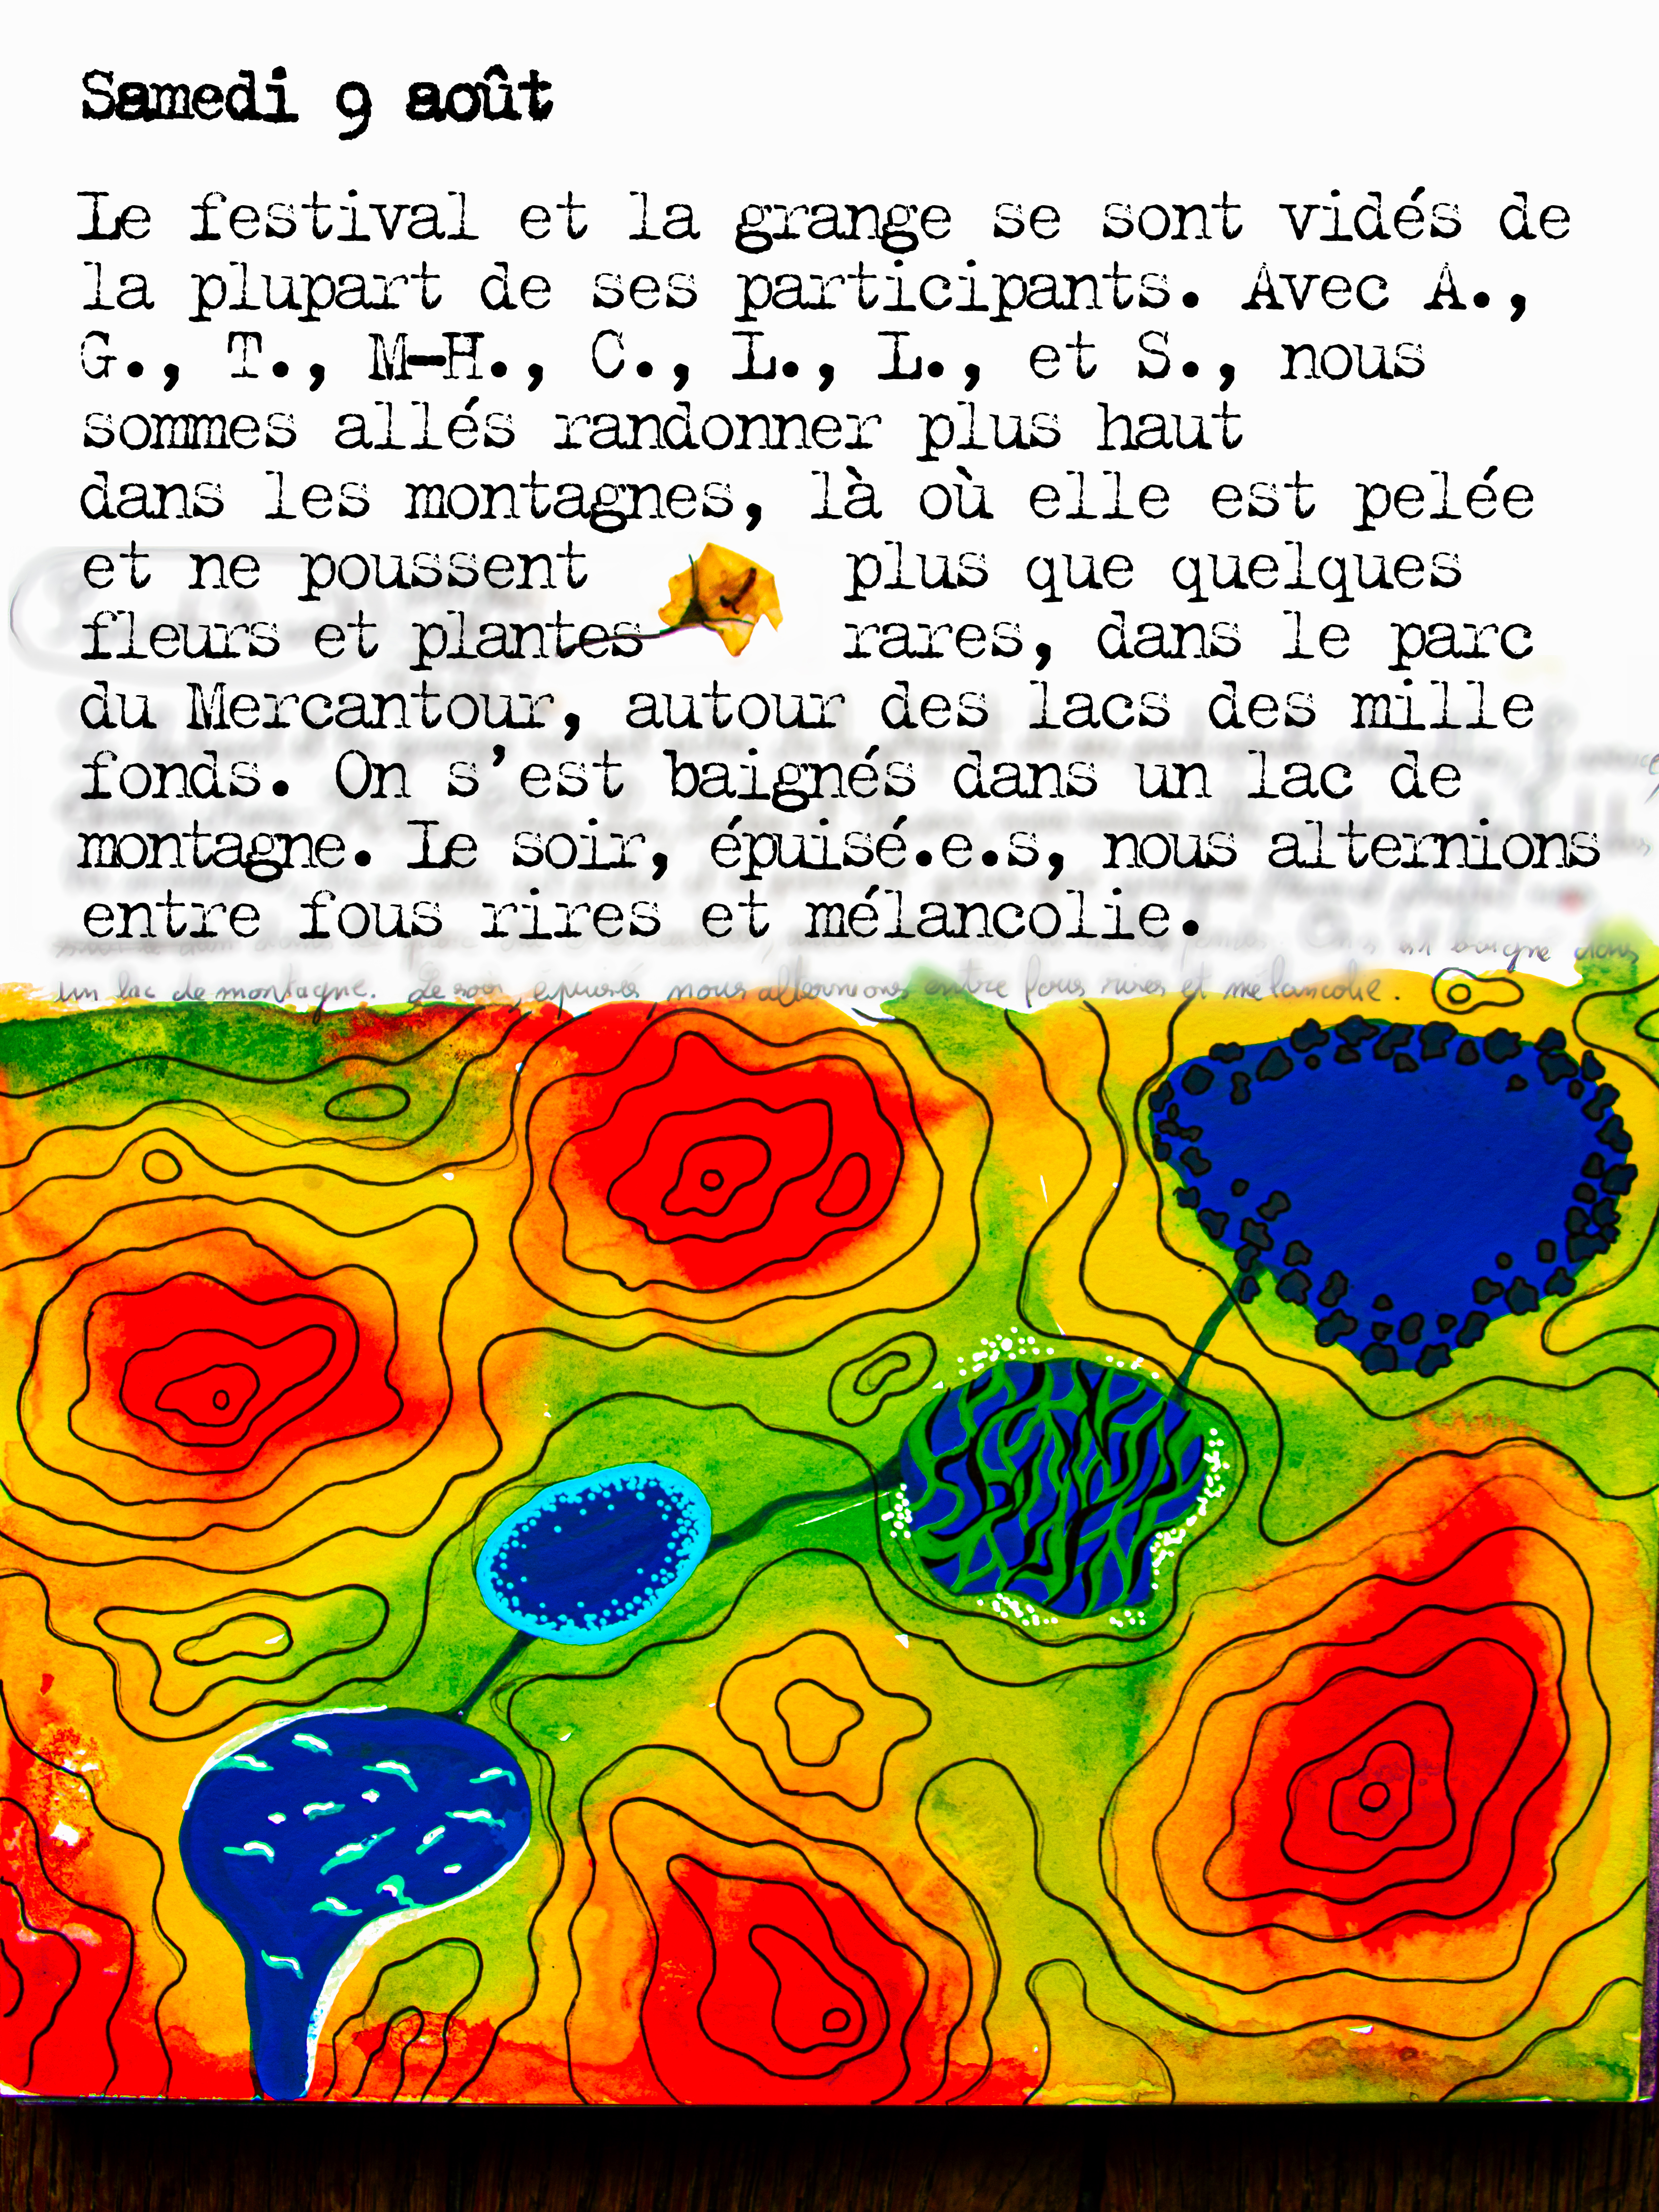 Samedi 9 août
Le festival et la grange se sont vidés de
la plupart de ses participants. Avec A.,
G., T., M-H., C., L., L., et S., nous
sommes allés randonner plus haut
dans les montagnes, là où elle est pelée
et ne poussent plus que quelques
fleurs et plantes rares, dans le parc
du Mercantour, autour des lacs des mille
fonds. On s'est baignés dans un lac de
montagne. Le soir, épuisé.e.s, nous alternions
entre fous rires et mélancolie.
baigné dans
un lac de montagne. Le soir, épuisés, nous alternions entre fous rires et mélancolie.